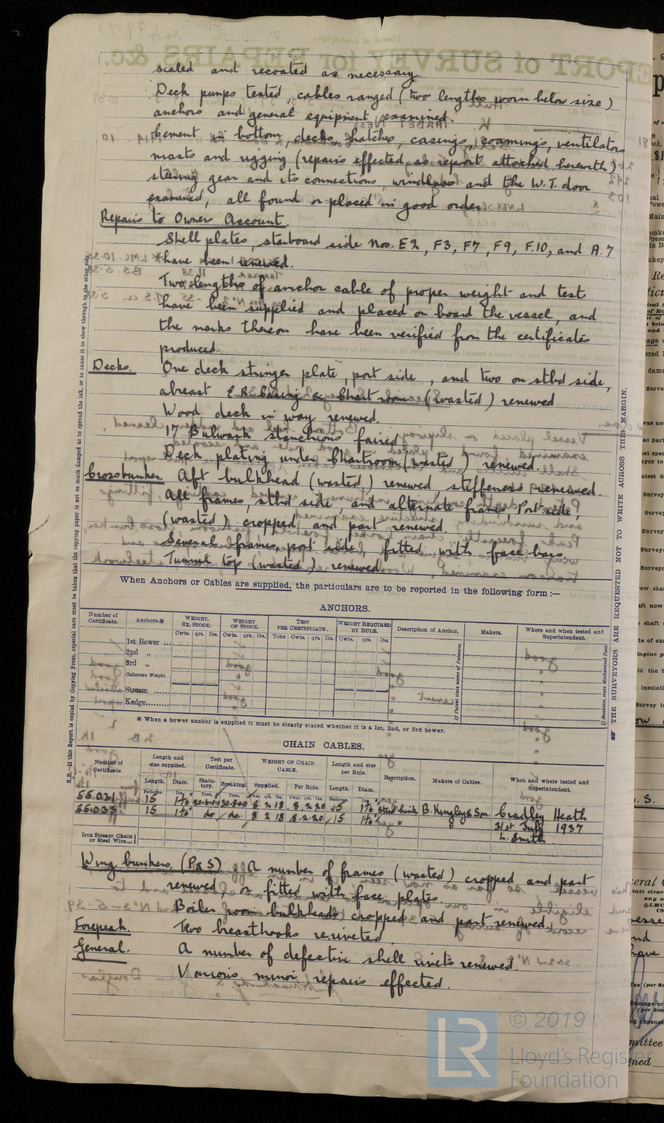 scaled and recoated as necessary.
Deck pumps tested, cables ranged (two lengths worn below size)
anchors and general equipment examined.
Cement in bottom, decks, hatches, casings, coamings, ventilators
masts and rigging (repairs effected, as report attached herewith)
steering gear and its connections, windlass and the W.T. door
examined, all found or placed in good order
Repairs to Owner Account.
Shell plates, starboard side Nos. E2, F3, F7, F9, F.10, and A.7
have been renewed.
Two lengths of anchor cable of proper weight and test
have been supplied and placed on board the vessel, and
the marks thereon have been verified from the certificates
produced.
Decks. One deck stringer plate, port side, and two on stbd side,
abreast E.R. casing & Chart room (wasted) renewed
Wood deck in way renewed.
17 Bulwark stanchions faired
Deck plating under Chartroom (wasted) renewed
Crossbunker. Aft bulkhead (wasted) renewed stiffeners renewed.
All frames, stbd side, and alternate frames Port side
(wasted) cropped and part renewed
Several frames, port side, fitted with face bars
Tunnel top (wasted) renewed
When Anchors or Cables are supplied, the particulars are to be reported in the following form :—
ANCHORS.
Number of Certificate. Anchors.* WEIGHT, EX. STOCK. WEIGHT OF STOCK. TEST PER CERTIFICATE. WEIGHT REQUIRED BY RULE. Description of Anchor. Makers. Where and when tested and Superintendent.
Cwts. qrs. lbs. Cwts. qrs. lbs. Tons Cwts. qrs. lbs. Cwts. qrs. lbs.
1st Bower ...
2nd „
3rd „
Collective Weight.
Stream
Kedge
* When a bower anchor is supplied it must be clearly stated whether it is a 1st, 2nd, or 3rd bower.
CHAIN CABLES.
Number of Certificate Length and size supplied. Test per Certificate. WEIGHT OF CHAIN CABLE. Length and size per Rule. Description. Makers of Cables. When and where tested and Superintendent.
Length. Diam. Statutory. Breaking. Supplied. Per Rule. Length. Diam.
55031 15 8 2 18 8.2.20 15 Stud Link B. Kingley & Son. Cradley Heath
55033 15 do do 8 2 18 8.2.20 15 " " 31st July 1937
Iron Stream Chain or Steel Wire... L. Smith
Wing bunkers (P & S) A number of frames (wasted) cropped and part
renewed, or fitted with face plates.
Boiler room bulkheads cropped and part renewed
Forepeak. Two breasthooks reriveted
General. A number of defective shell rivets renewed.
Various minor repairs effected.
THE SURVEYORS ARE REQUESTED NOT TO WRITE ACROSS THIS MARGIN.
© 2019
LR
Lloyd's Register
Foundation